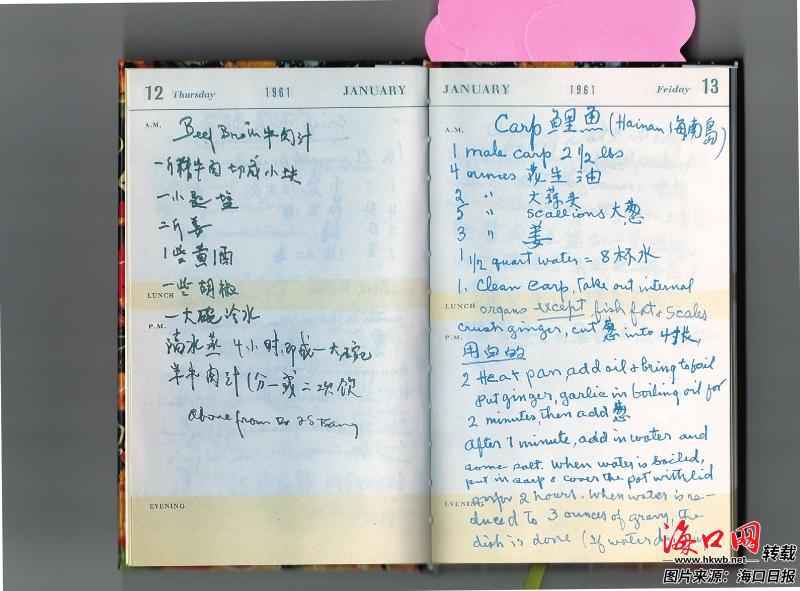 12 Thursday 1961 JANUARY
A.M.
Beef Broth 牛肉汁
一斤精牛肉切成小块
一小匙盐
二斤姜
1些黄酒
一些胡椒
LUNCH
一大碗冷水
P.M.
隔水蒸4小时,即成一大碗
羊牛肉汁(分一或二次饮
above from Dr JS Tsang
EVENING
JANUARY 1961 Friday 13
A.M.
Carp 鲤鱼 (Hainan 海南島)
1 male carp 2 1/2 lbs
4 ounces 花生油
2 " 大蒜头
5 " scallions 大葱
3 " 姜
1 1/2 quart water = 8杯水
1. Clean Carp, Take out internal
LUNCH
organs except fish fat & scales
crush ginger, cut 葱 into 4时长,
P.M.
用白的
2 Heat pan, add oil & bring to boil
Put ginger, garlic in boiling oil for
2 minutes, then add 葱
After 1 minute, add in water and
some salt. When water is boiled,
put in carp & cover the pot with lid
EVENING
for 2 hours. When water is re-
duced to 3 ounces of gravy, the
dish is done (If water
海口网
www.hkwb.net 转载
图片来源:海口日报